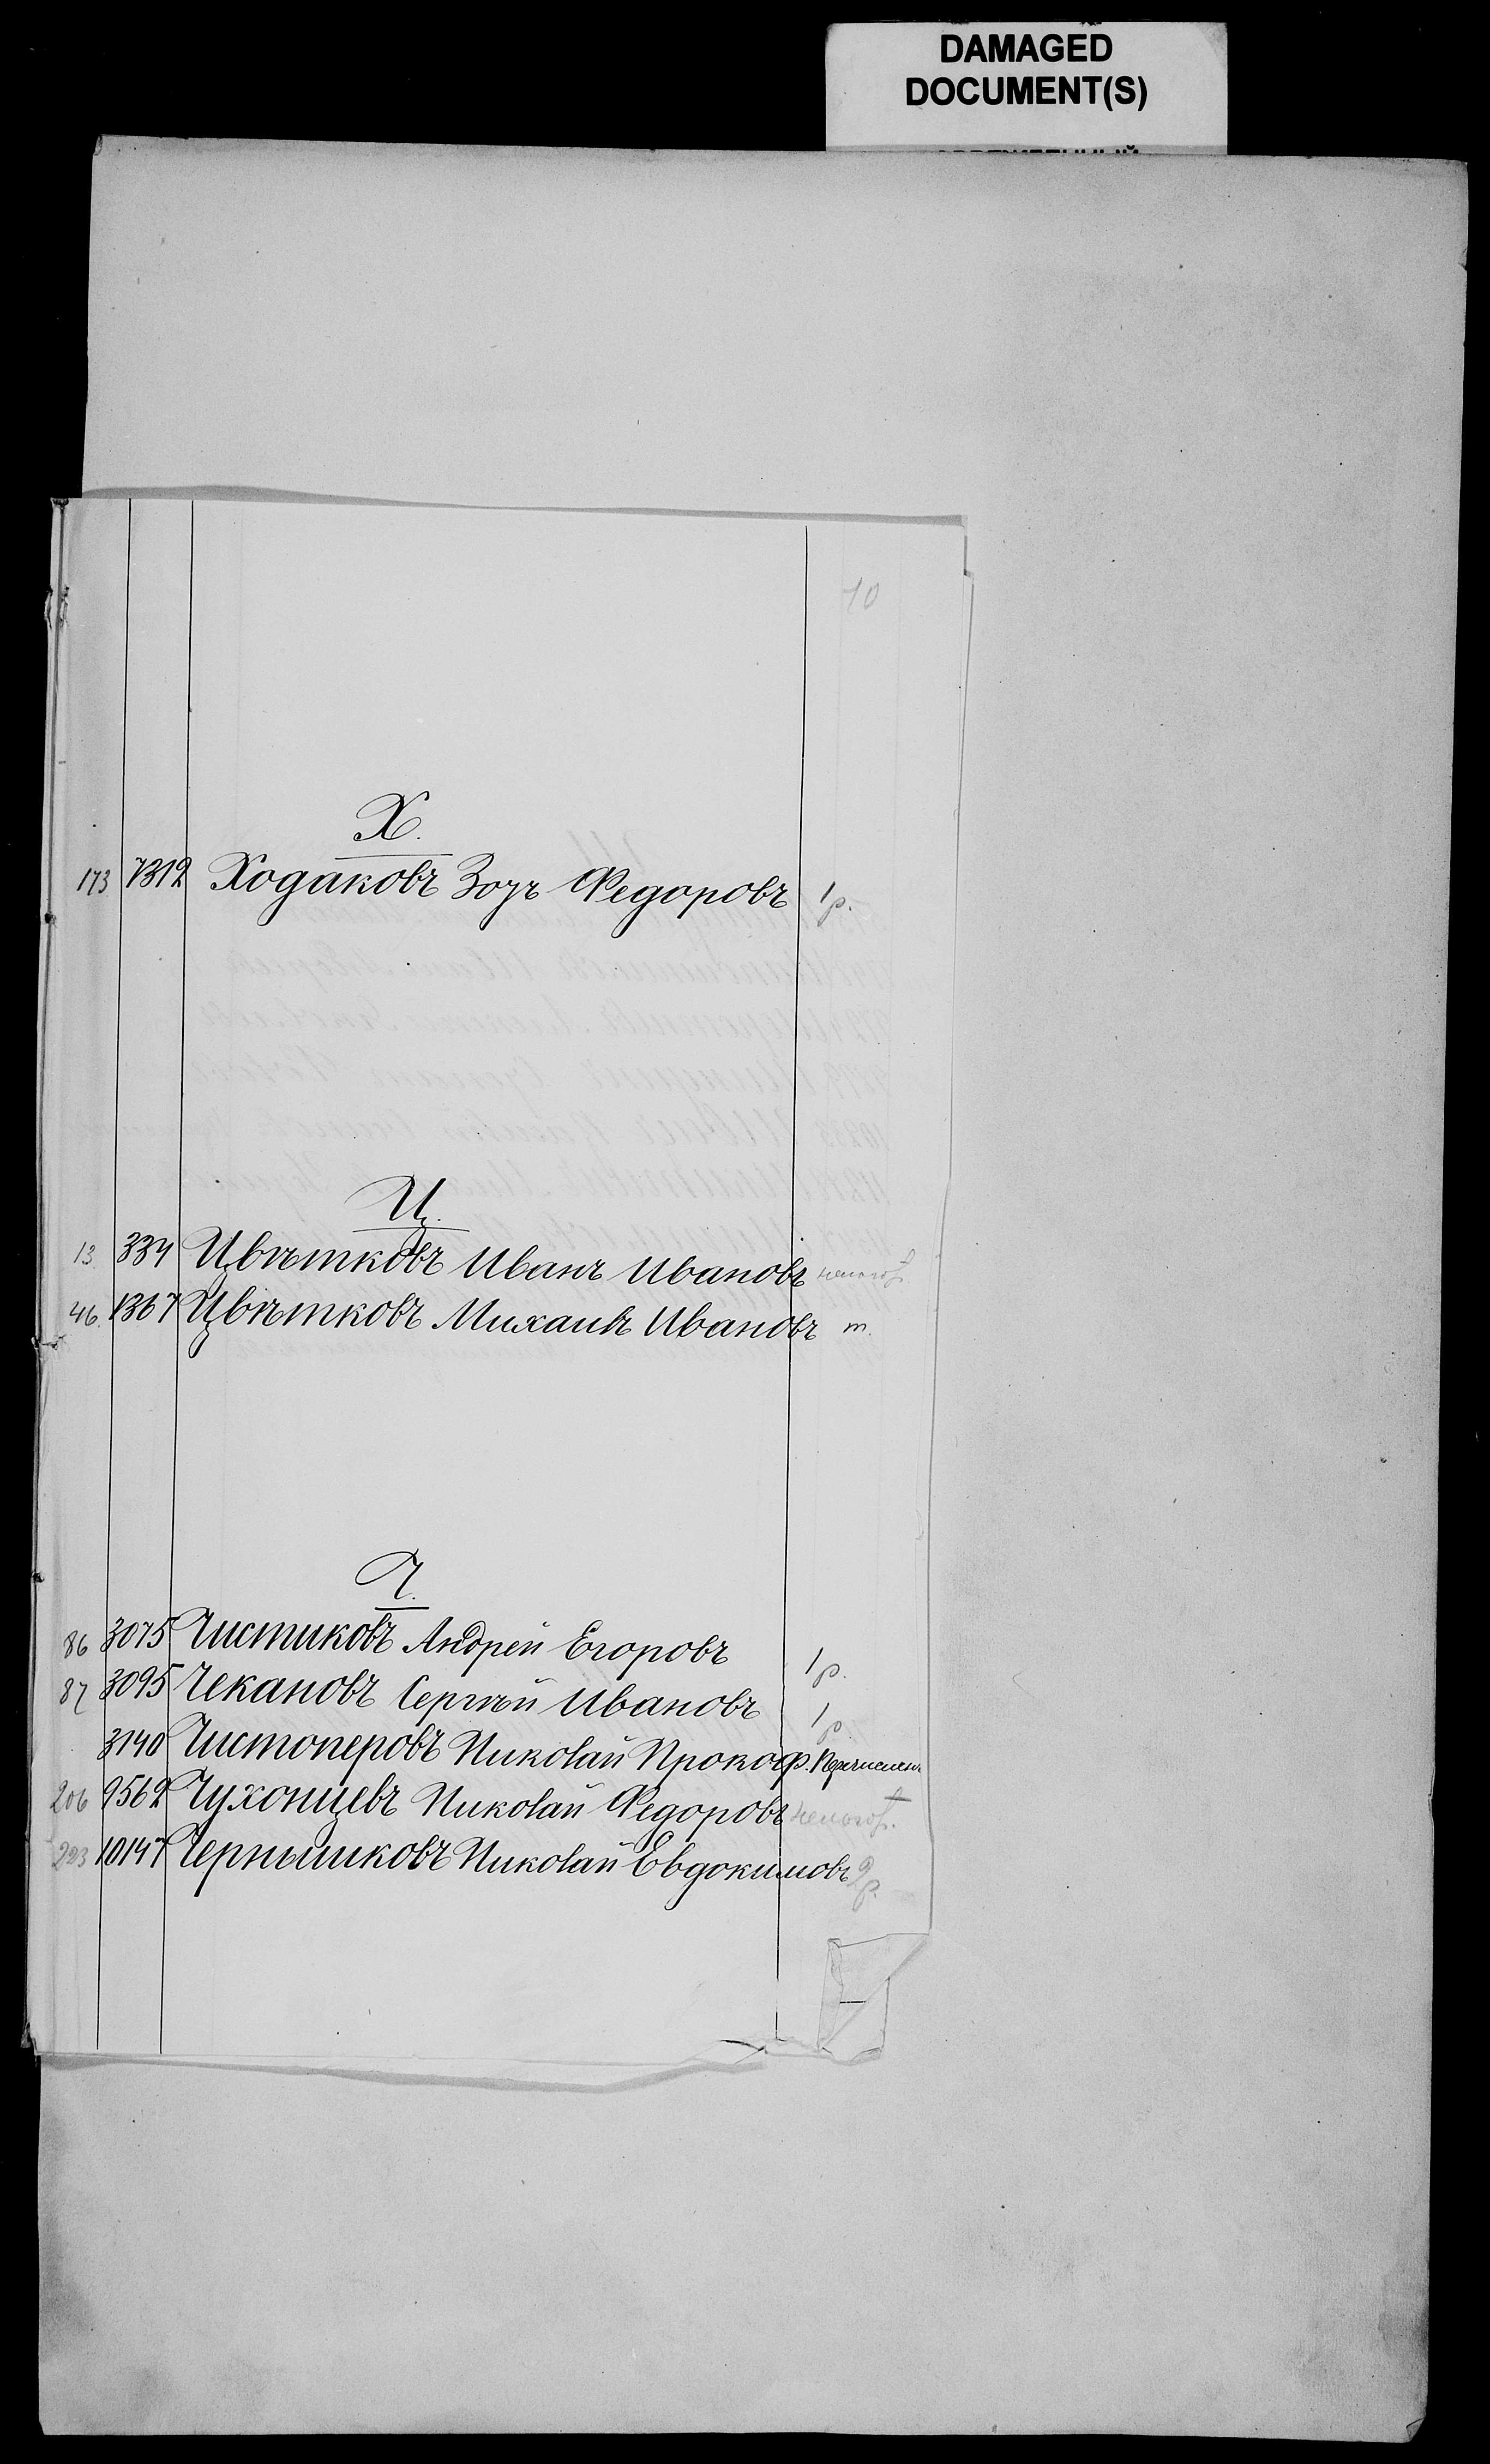 DAMAGED
DOCUMENT(S)
10
Х.
173 7312 Ходаковъ Федоровъ 1 р.
Ц.
13. 334 Цвѣтковъ Иванъ Ивановъ
46. 1367 Цвѣтковъ Михаилъ Ивановъ т.
Ч.
86 3075 Чистиковъ Андрей Егоровъ 1 р.
87 3095 Чекановъ Сергѣй Ивановъ 1 р.
3140 Чистоперовъ Николай Прокоф.
206 9562 Чухонцевъ Николай Федоровъ
223 10147 Чернышковъ Николай Евдокимовъ 2 р.